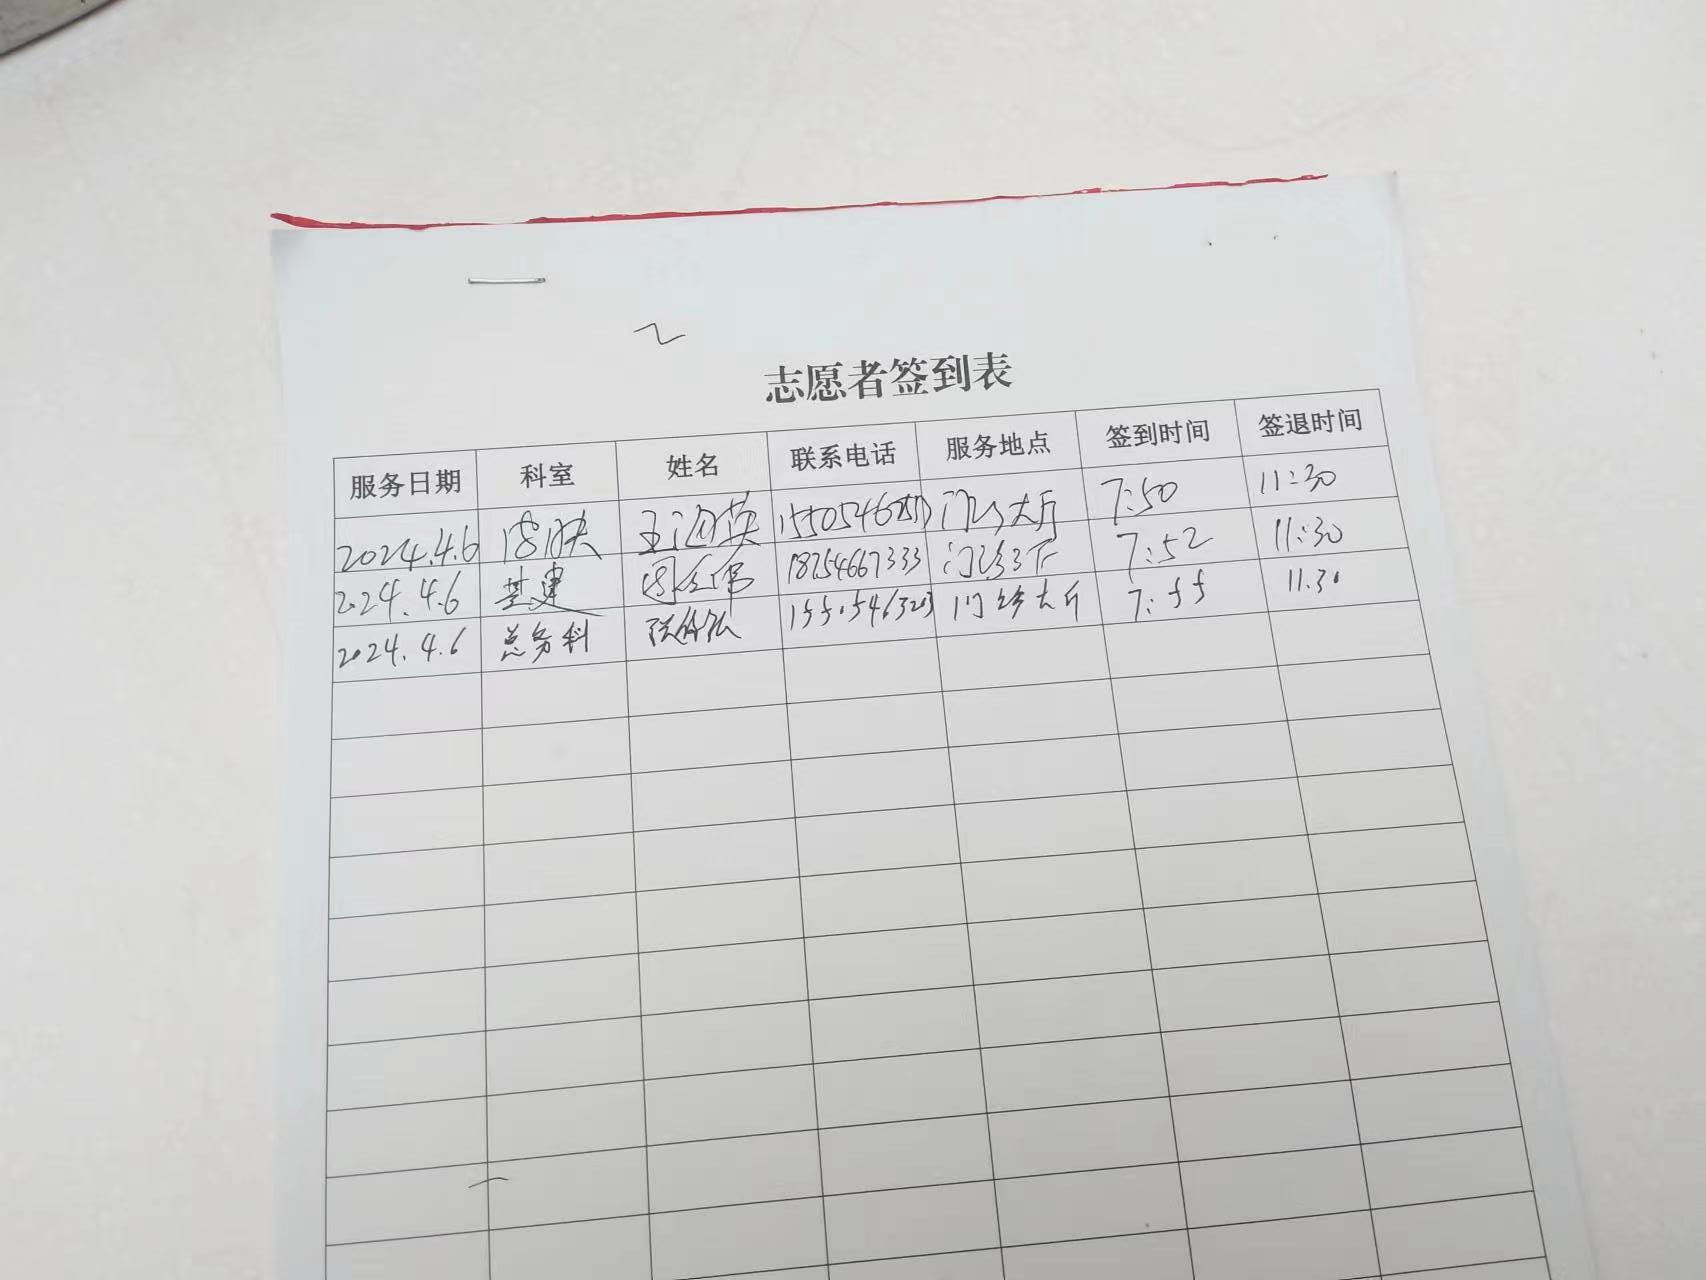 志愿者签到表
服务日期 科室 姓名 联系电话 服务地点 签到时间 签退时间
2024.4.6 皮肤 王 英 门诊大厅 7:50 11:30
2024.4.6 基建 周 18254667333 门诊 7:52 11:30
2024.4.6 总务科 15505463203 门诊大厅 7:55 11.30